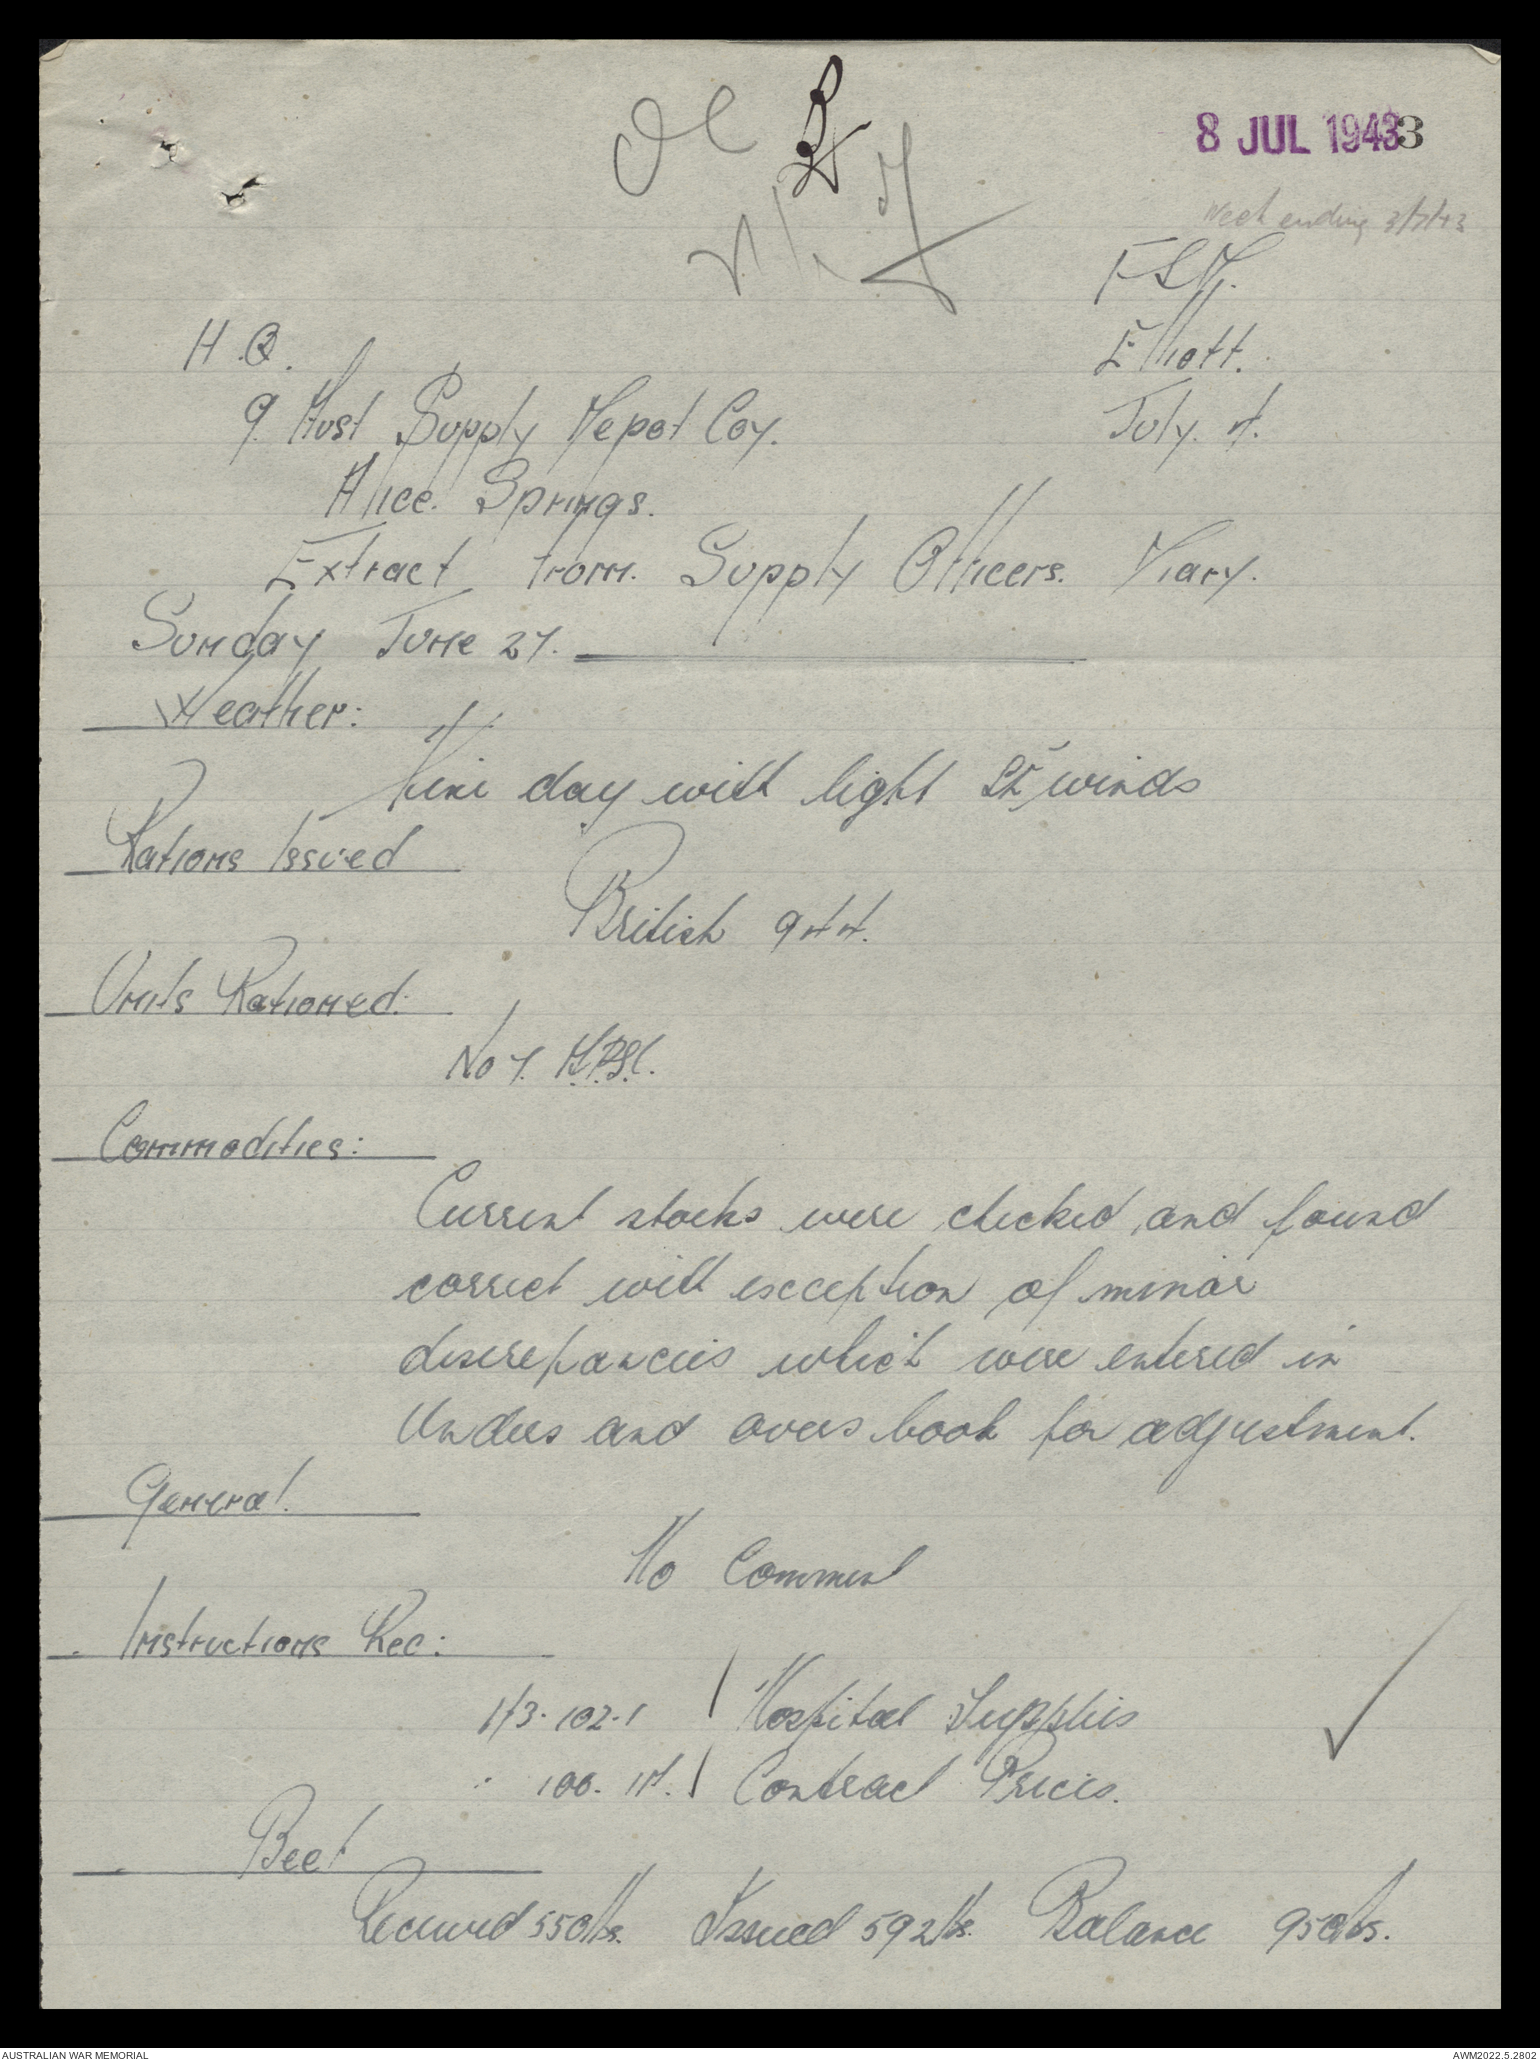 OC
8 JUL 1943
3
Week ending 3/7/43
F.S.D.
Elliott.
July. 4.
H.Q.
9. Aust Supply Depot Coy.
Alice. Springs.
Extract from. Supply Officers. Diary.
Sunday June 27.
Weather:
Fine day with light SE winds
Rations Issued
British 944.
Units Rationed:
No 7. D.P.S.C.
Commodities:
Current stocks were checked and found
correct with exception of minor
discrepancies which were entered in
Unders and overs book for adjustment.
General.
No Comment
Instructions Rec:
1/3. 102.1 / Hospital Supplies
" 100. 14. / Contract Prices.
Beef
Received 550lbs. Issued 592lbs. Balance 950lbs.
AUSTRALIAN WAR MEMORIAL
AWM2022.5.2802